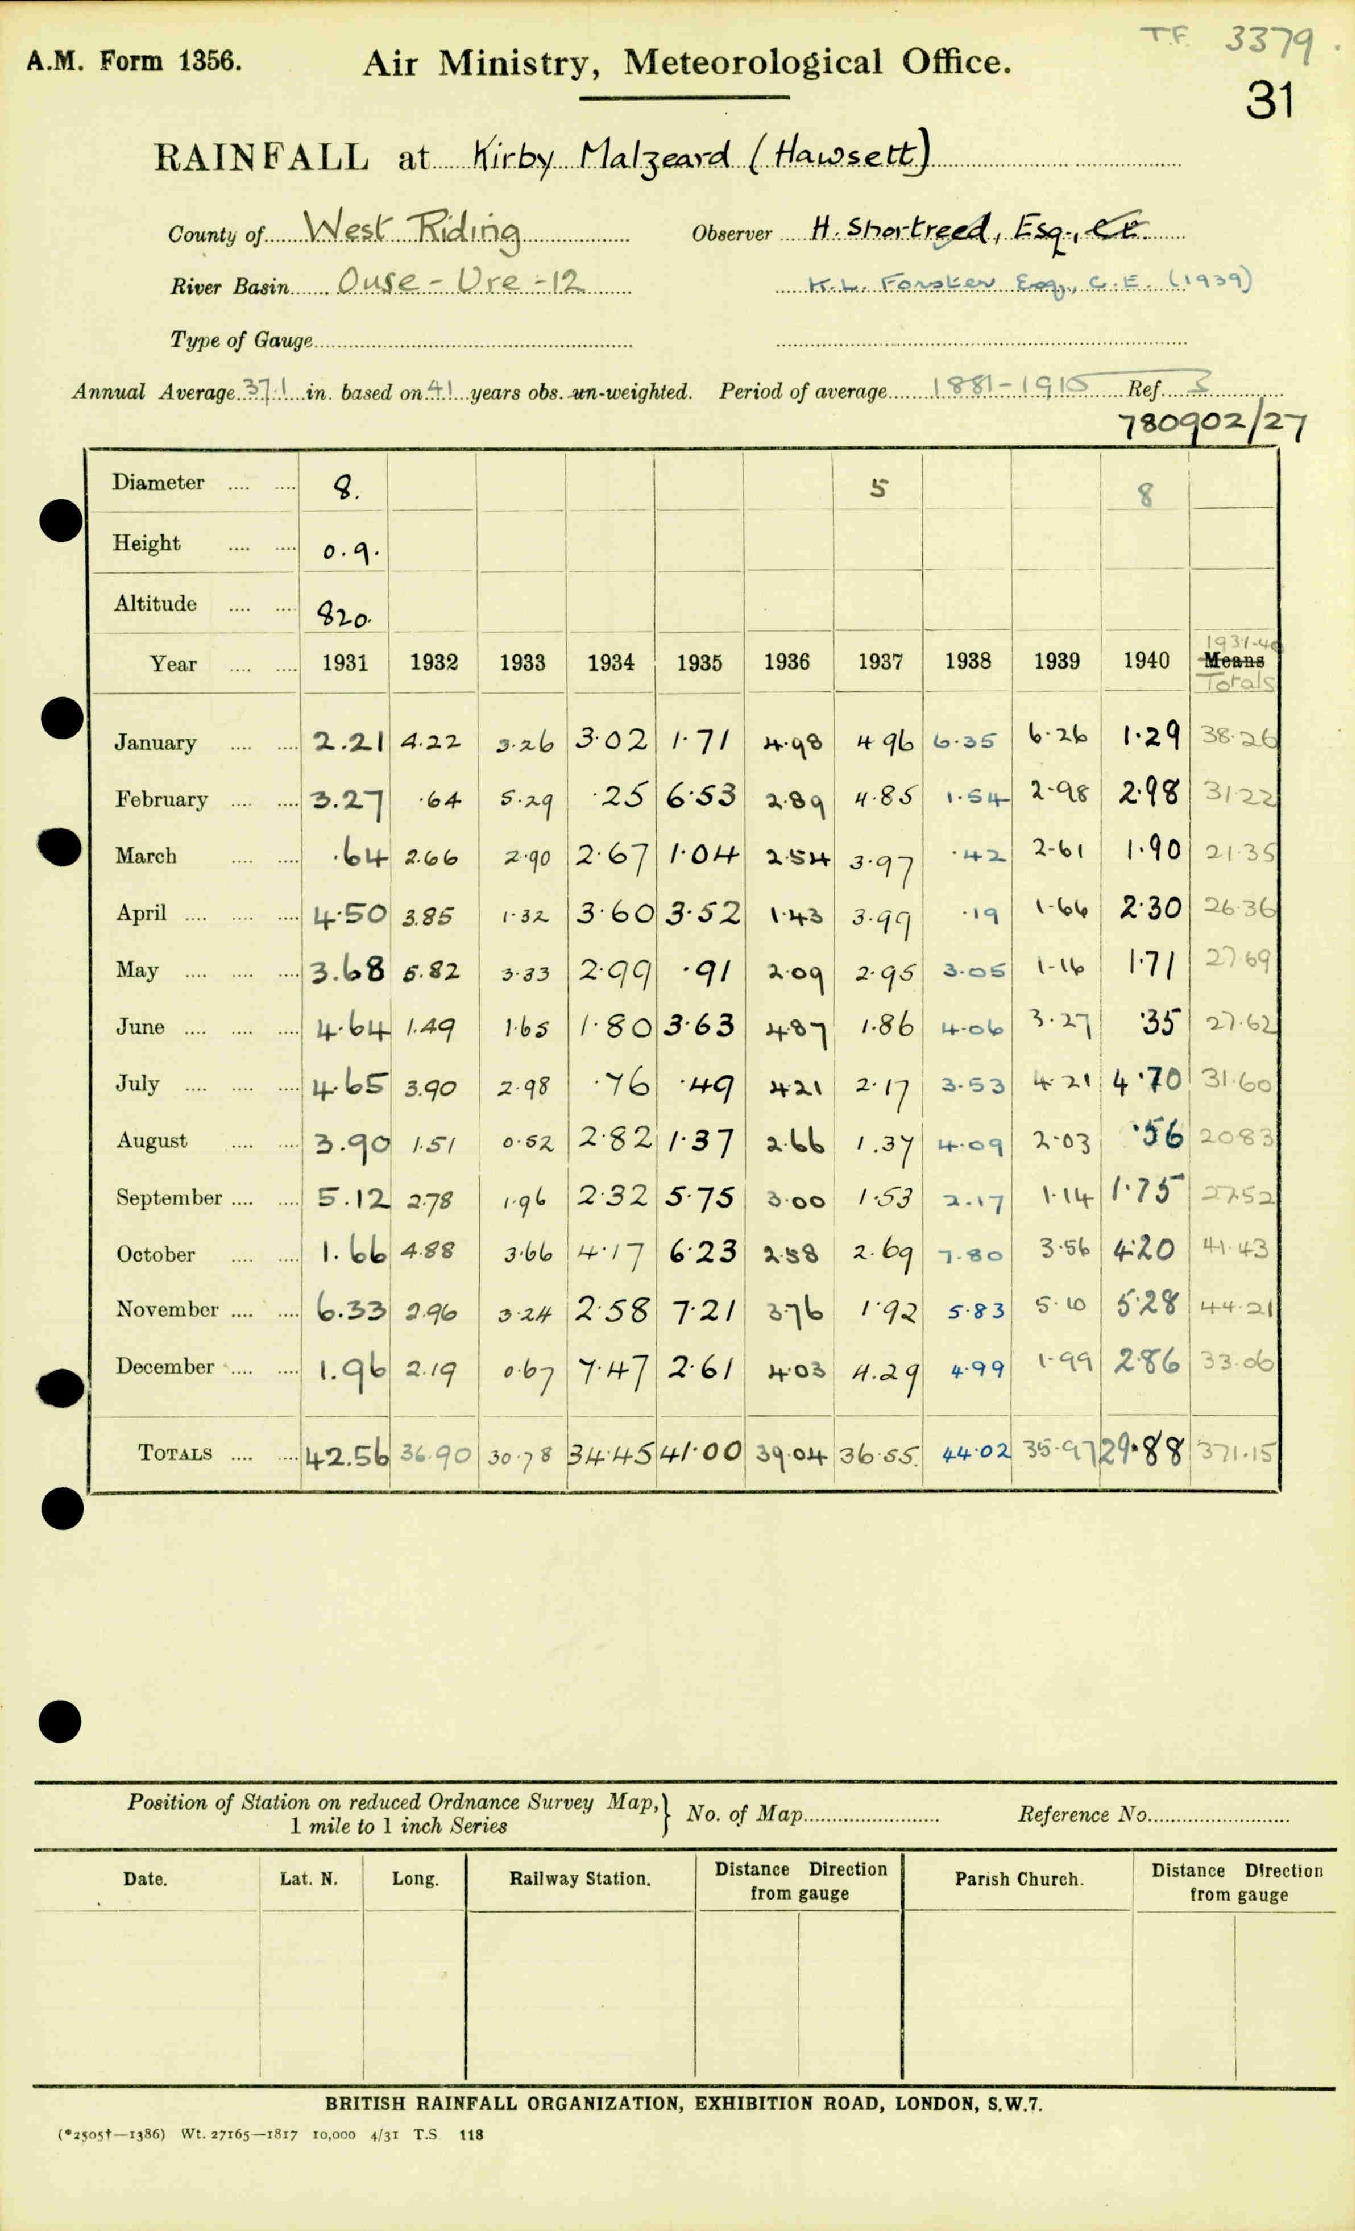 T.F. 3379.
A.M. Form 1356. Air Ministry, Meteorological Office.
31
RAINFALL at Kirby Malzeard (Hawsett)
County of West Riding Observer H. Shortreed, Esq., C.E.
River Basin Ouse - Ure - 12 K.L. Forster Esq., C.E. (1939)
Type of Gauge
Annual Average 37.1 in. based on 41 years obs. un-weighted. Period of average 1881-1915 Ref. S
780902/27
Diameter 8. 5 8
Height 0.9.
Altitude 820.
Year 1931 1932 1933 1934 1935 1936 1937 1938 1939 1940 1931-40 Means Totals
January 2.21 4.22 3.26 3.02 1.71 4.98 4.96 6.35 6.26 1.29 38.26
February 3.27 .64 5.29 .25 6.53 2.89 4.85 1.54 2.98 2.98 31.22
March .64 2.66 2.90 2.67 1.04 2.54 3.97 .42 2.61 1.90 21.35
April 4.50 3.85 1.32 3.60 3.52 1.43 3.99 .19 1.66 2.30 26.36
May 3.68 5.82 3.33 2.99 .91 2.09 2.95 3.05 1.16 1.71 27.69
June 4.64 1.49 1.65 1.80 3.63 4.87 1.86 4.06 3.27 .35 27.62
July 4.65 3.90 2.98 .76 .49 4.21 2.17 3.53 4.21 4.70 31.60
August 3.90 1.51 0.52 2.82 1.37 2.66 1.37 4.09 2.03 .56 20.83
September 5.12 2.78 1.96 2.32 5.75 3.00 1.53 2.17 1.14 1.75 27.52
October 1.66 4.88 3.66 4.17 6.23 2.58 2.69 7.80 3.56 4.20 41.43
November 6.33 2.96 3.24 2.58 7.21 3.76 1.92 5.83 5.10 5.28 44.21
December 1.96 2.19 0.67 7.47 2.61 4.03 4.29 4.99 1.99 2.86 33.06
TOTALS 42.56 36.90 30.78 34.45 41.00 39.04 36.55 44.02 35.97 29.88 371.15
Position of Station on reduced Ordnance Survey Map, } No. of Map Reference No.
1 mile to 1 inch Series
Date. Lat. N. Long. Railway Station. Distance Direction from gauge Parish Church. Distance Direction from gauge
BRITISH RAINFALL ORGANIZATION, EXHIBITION ROAD, LONDON, S.W.7.
(*2505†—1386) Wt. 27165—1817 10,000 4/31 T.S. 118